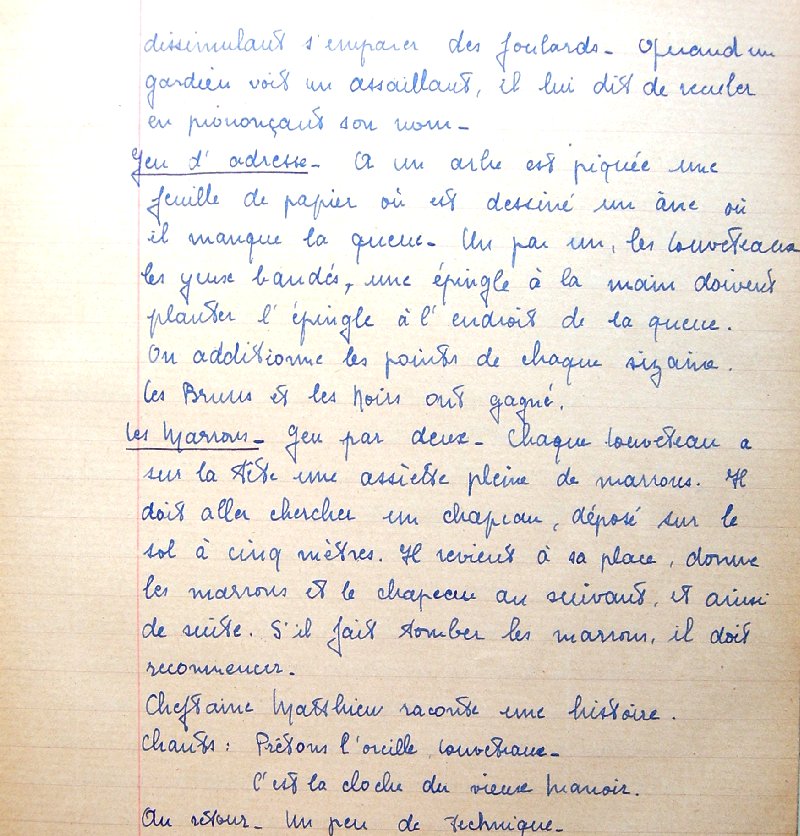 dissimulant s'emparer des foulards - Quand un
gardien voit un assaillant, il lui dit de reculer
en prononçant son nom -
Jeu d'adresse - A un arbre est piquée une
feuille de papier où est dessiné un âne où
il manque la queue - Un par un, les louveteaux
les yeux bandés, une épingle à la main doivent
planter l'épingle à l'endroit de la queue.
On additionne les points de chaque sizaine.
Les Bruns et les Noirs ont gagné.
Les Marrons - Jeu par deux - Chaque louveteau a
sur la tête une assiette pleine de marrons. Il
doit aller chercher un chapeau, déposé sur le
sol à cinq mètres. Il revient à sa place, donne
les marrons et le chapeau au suivant, et ainsi
de suite. S'il fait tomber les marrons, il doit
recommencer -
Cheftaine Matthieu raconte une histoire.
Chants : Prêtons l'oreille, louveteaux -
C'est la cloche du vieux manoir.
Au retour - Un peu de technique -